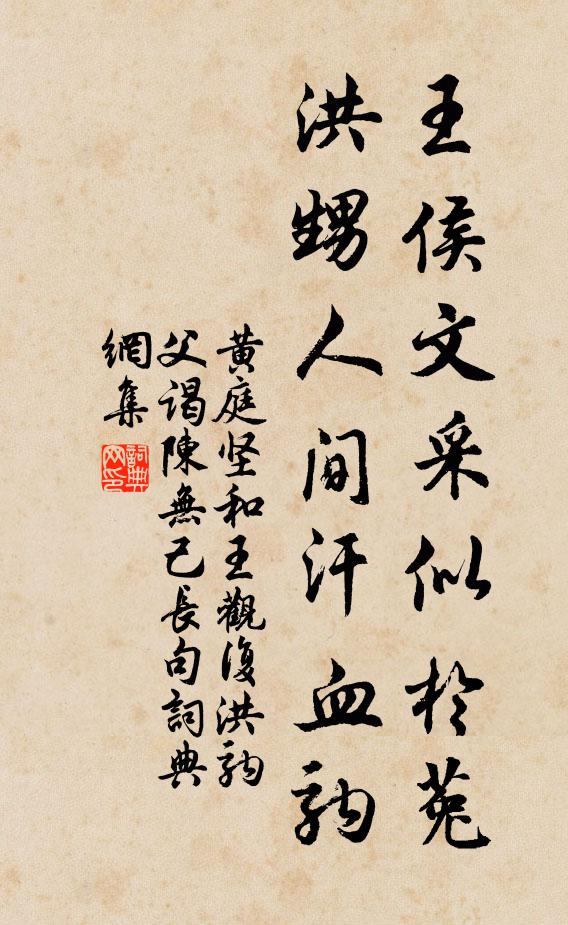 王侯文采似於菟
洪甥人間汗血駒
黄庭坚和王觀復洪駒
父謁陳無己長句詞典
網集
詞典網印